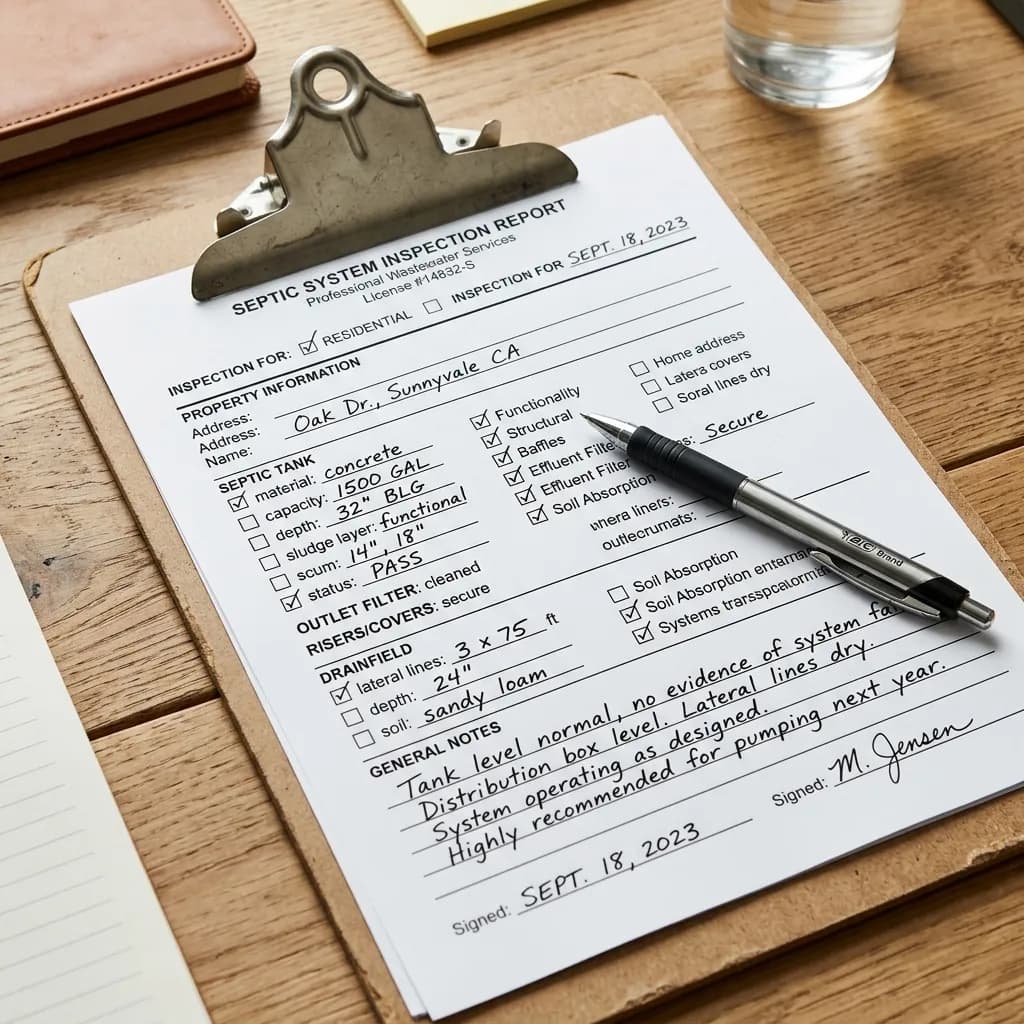 SEPTIC SYSTEM INSPECTION REPORT
Professional Wastewater Services
License #14832-S
INSPECTION FOR: ☑ RESIDENTIAL ☐ INSPECTION FOR SEPT. 18, 2023
PROPERTY INFORMATION
Address:
Address: Oak Dr., Sunnyvale CA
Name:
☐ Home address
☐ Latera covers
☐ Soral lines dry
SEPTIC TANK
☑ material: concrete
☐ capacity: 1500 GAL
☐ depth: 32" BLG
☐ sludge layer: functional
☐ scum: 14", 18"
☑ status: PASS
☑ Functionality
☑ Structural
☑ Baffles
☑ Effluent Filte
☑ Effluent Filter
☑ Soil Absorption
Secure
OUTLET FILTER: cleaned
RISERS/COVERS: secure
DRAINFIELD
☑ lateral lines: 3 x 75 ft
☐ depth: 24"
☐ soil: sandy loam
☐ Soil Absorption
☑ Soil Absorption
☑ Systems
GENERAL NOTES
Tank level normal, no evidence of system
Distribution box level. Lateral lines dry.
System operating as designed.
Highly recommended for pumping next year.
Signed: M. Jensen
Signed: SEPT. 18, 2023
BIC